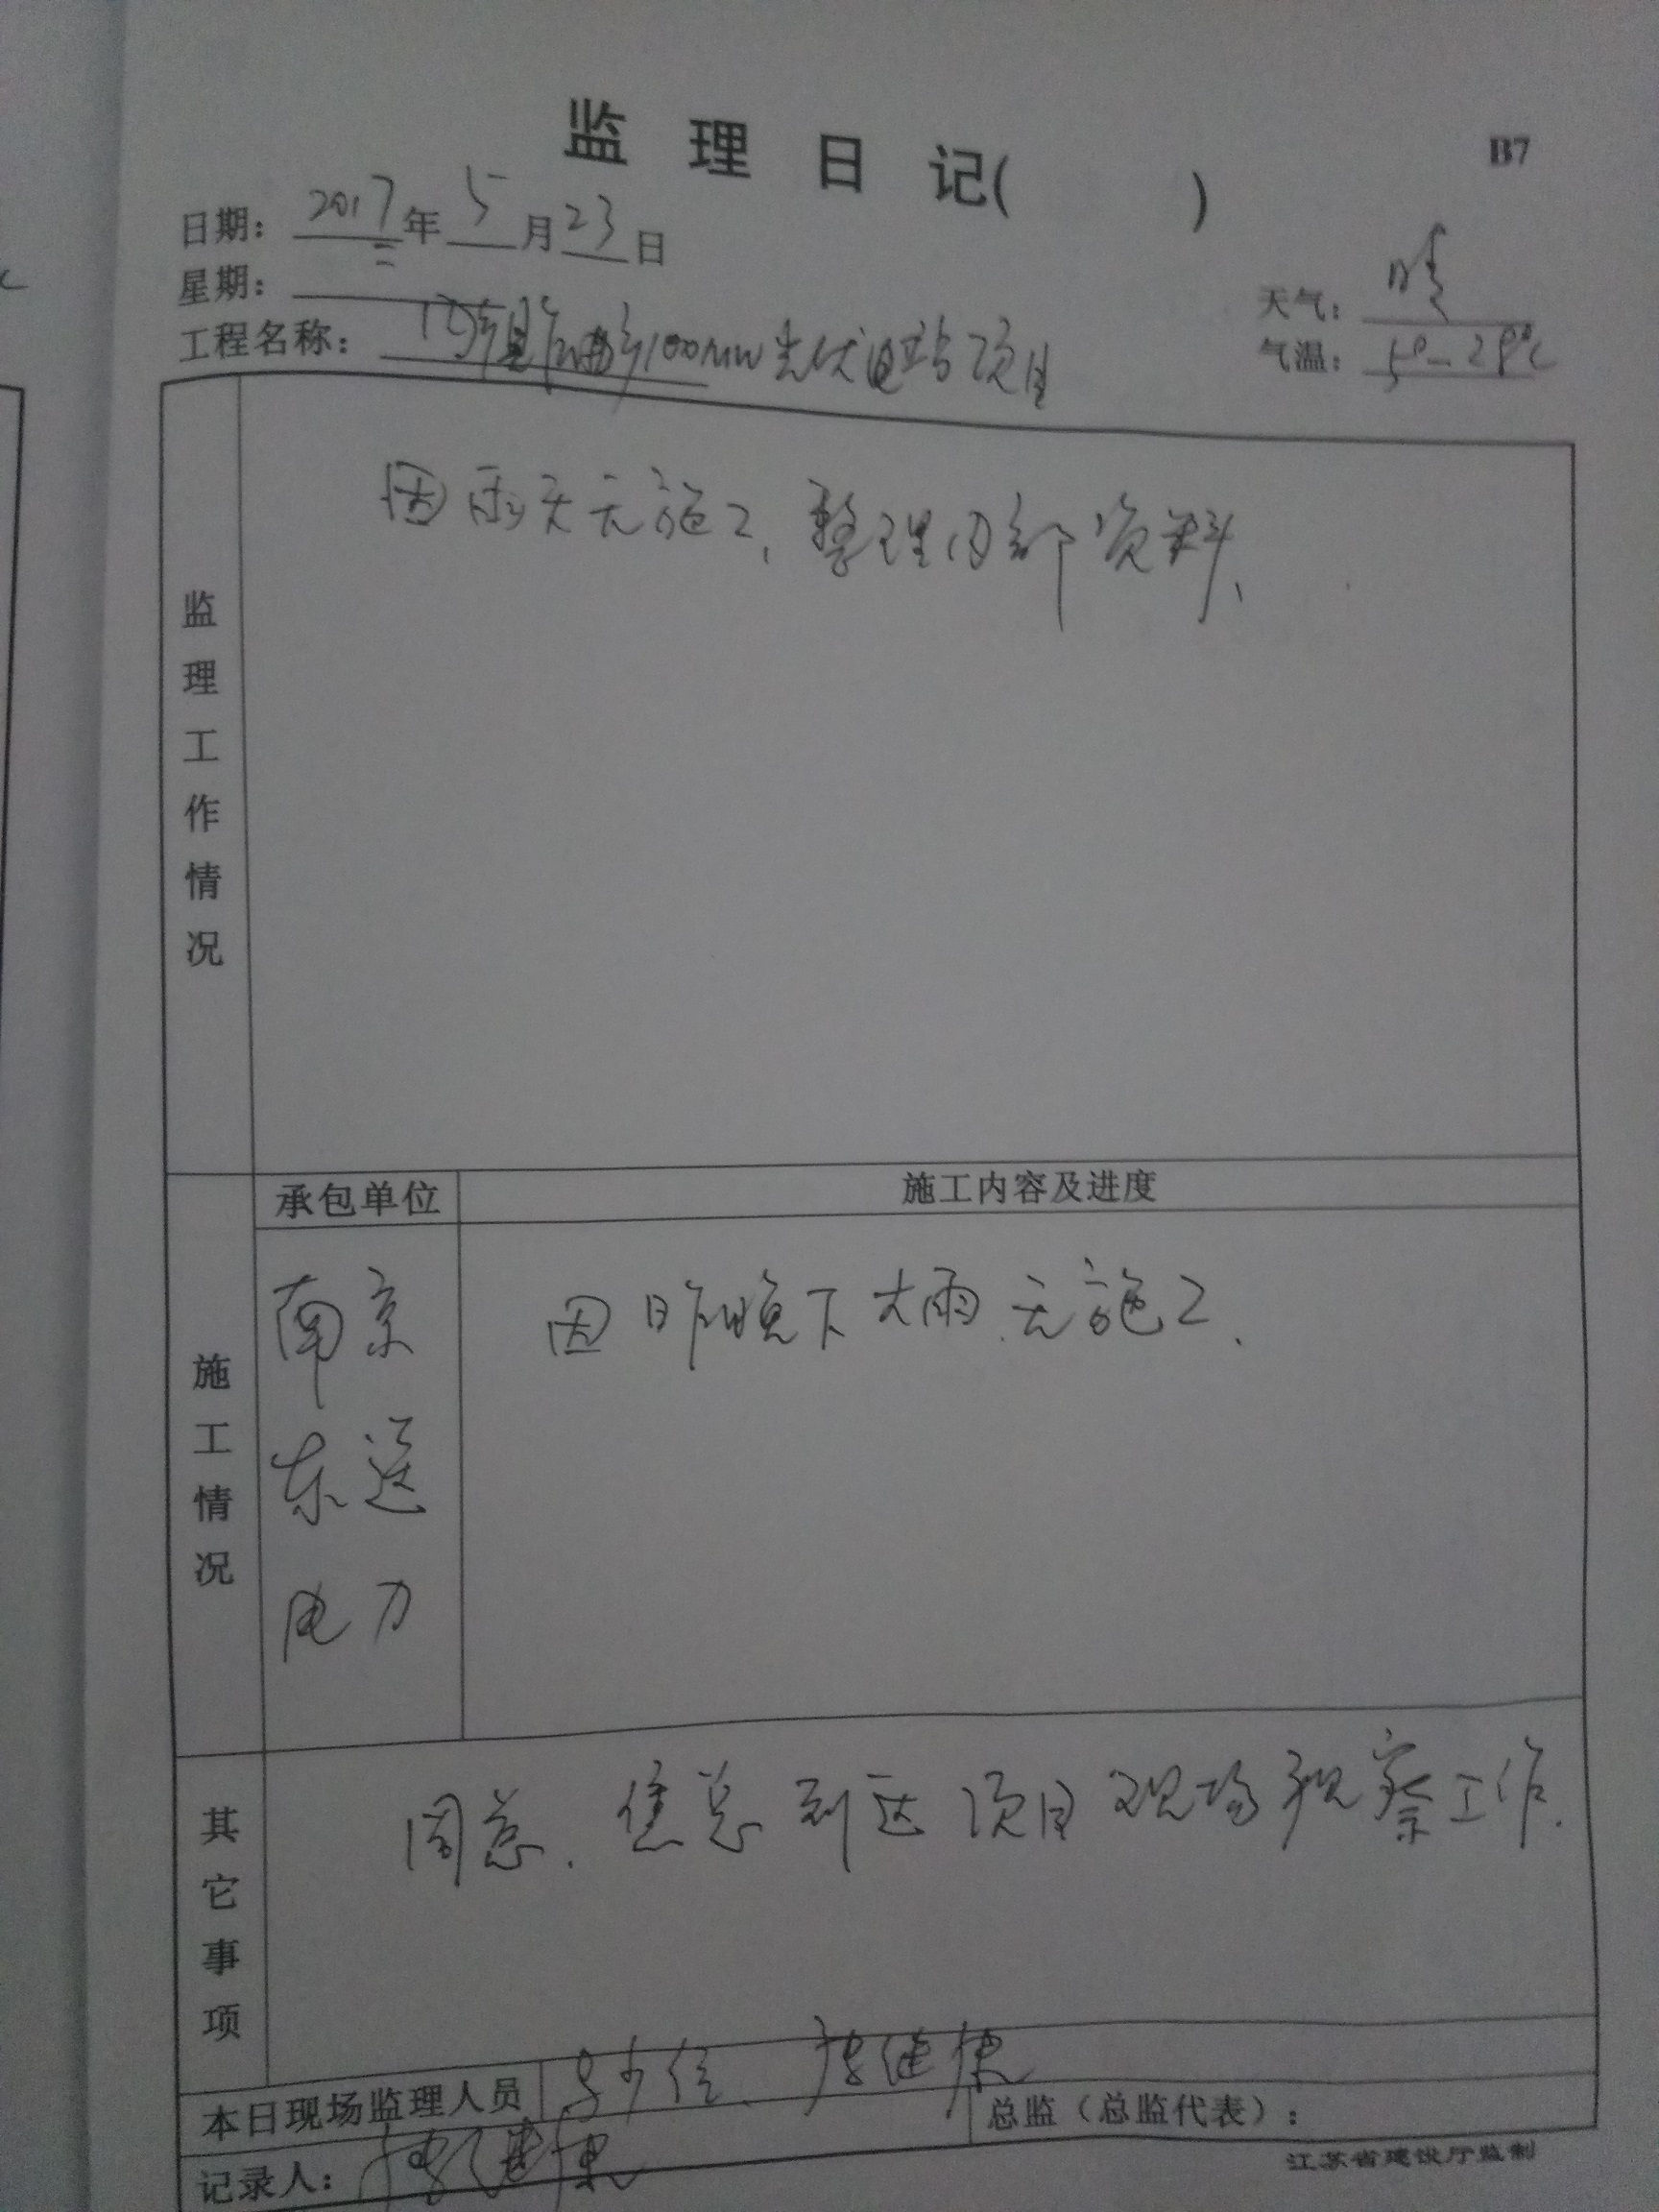 监理日记( )
B7
日期：2017年5月23日
星期：二
天气：晴
工程名称：县100MW光伏电站项目
气温：5°-28℃
监理工作情况
因雨天无施工、整理内部资料、
施工情况
承包单位
施工内容及进度
南京
东送
电力
因昨晚下大雨.无施工、
其它事项
周总、焦总到达项目现场视察工作.
本日现场监理人员
总监（总监代表）：
记录人：
江苏省建设厅监制